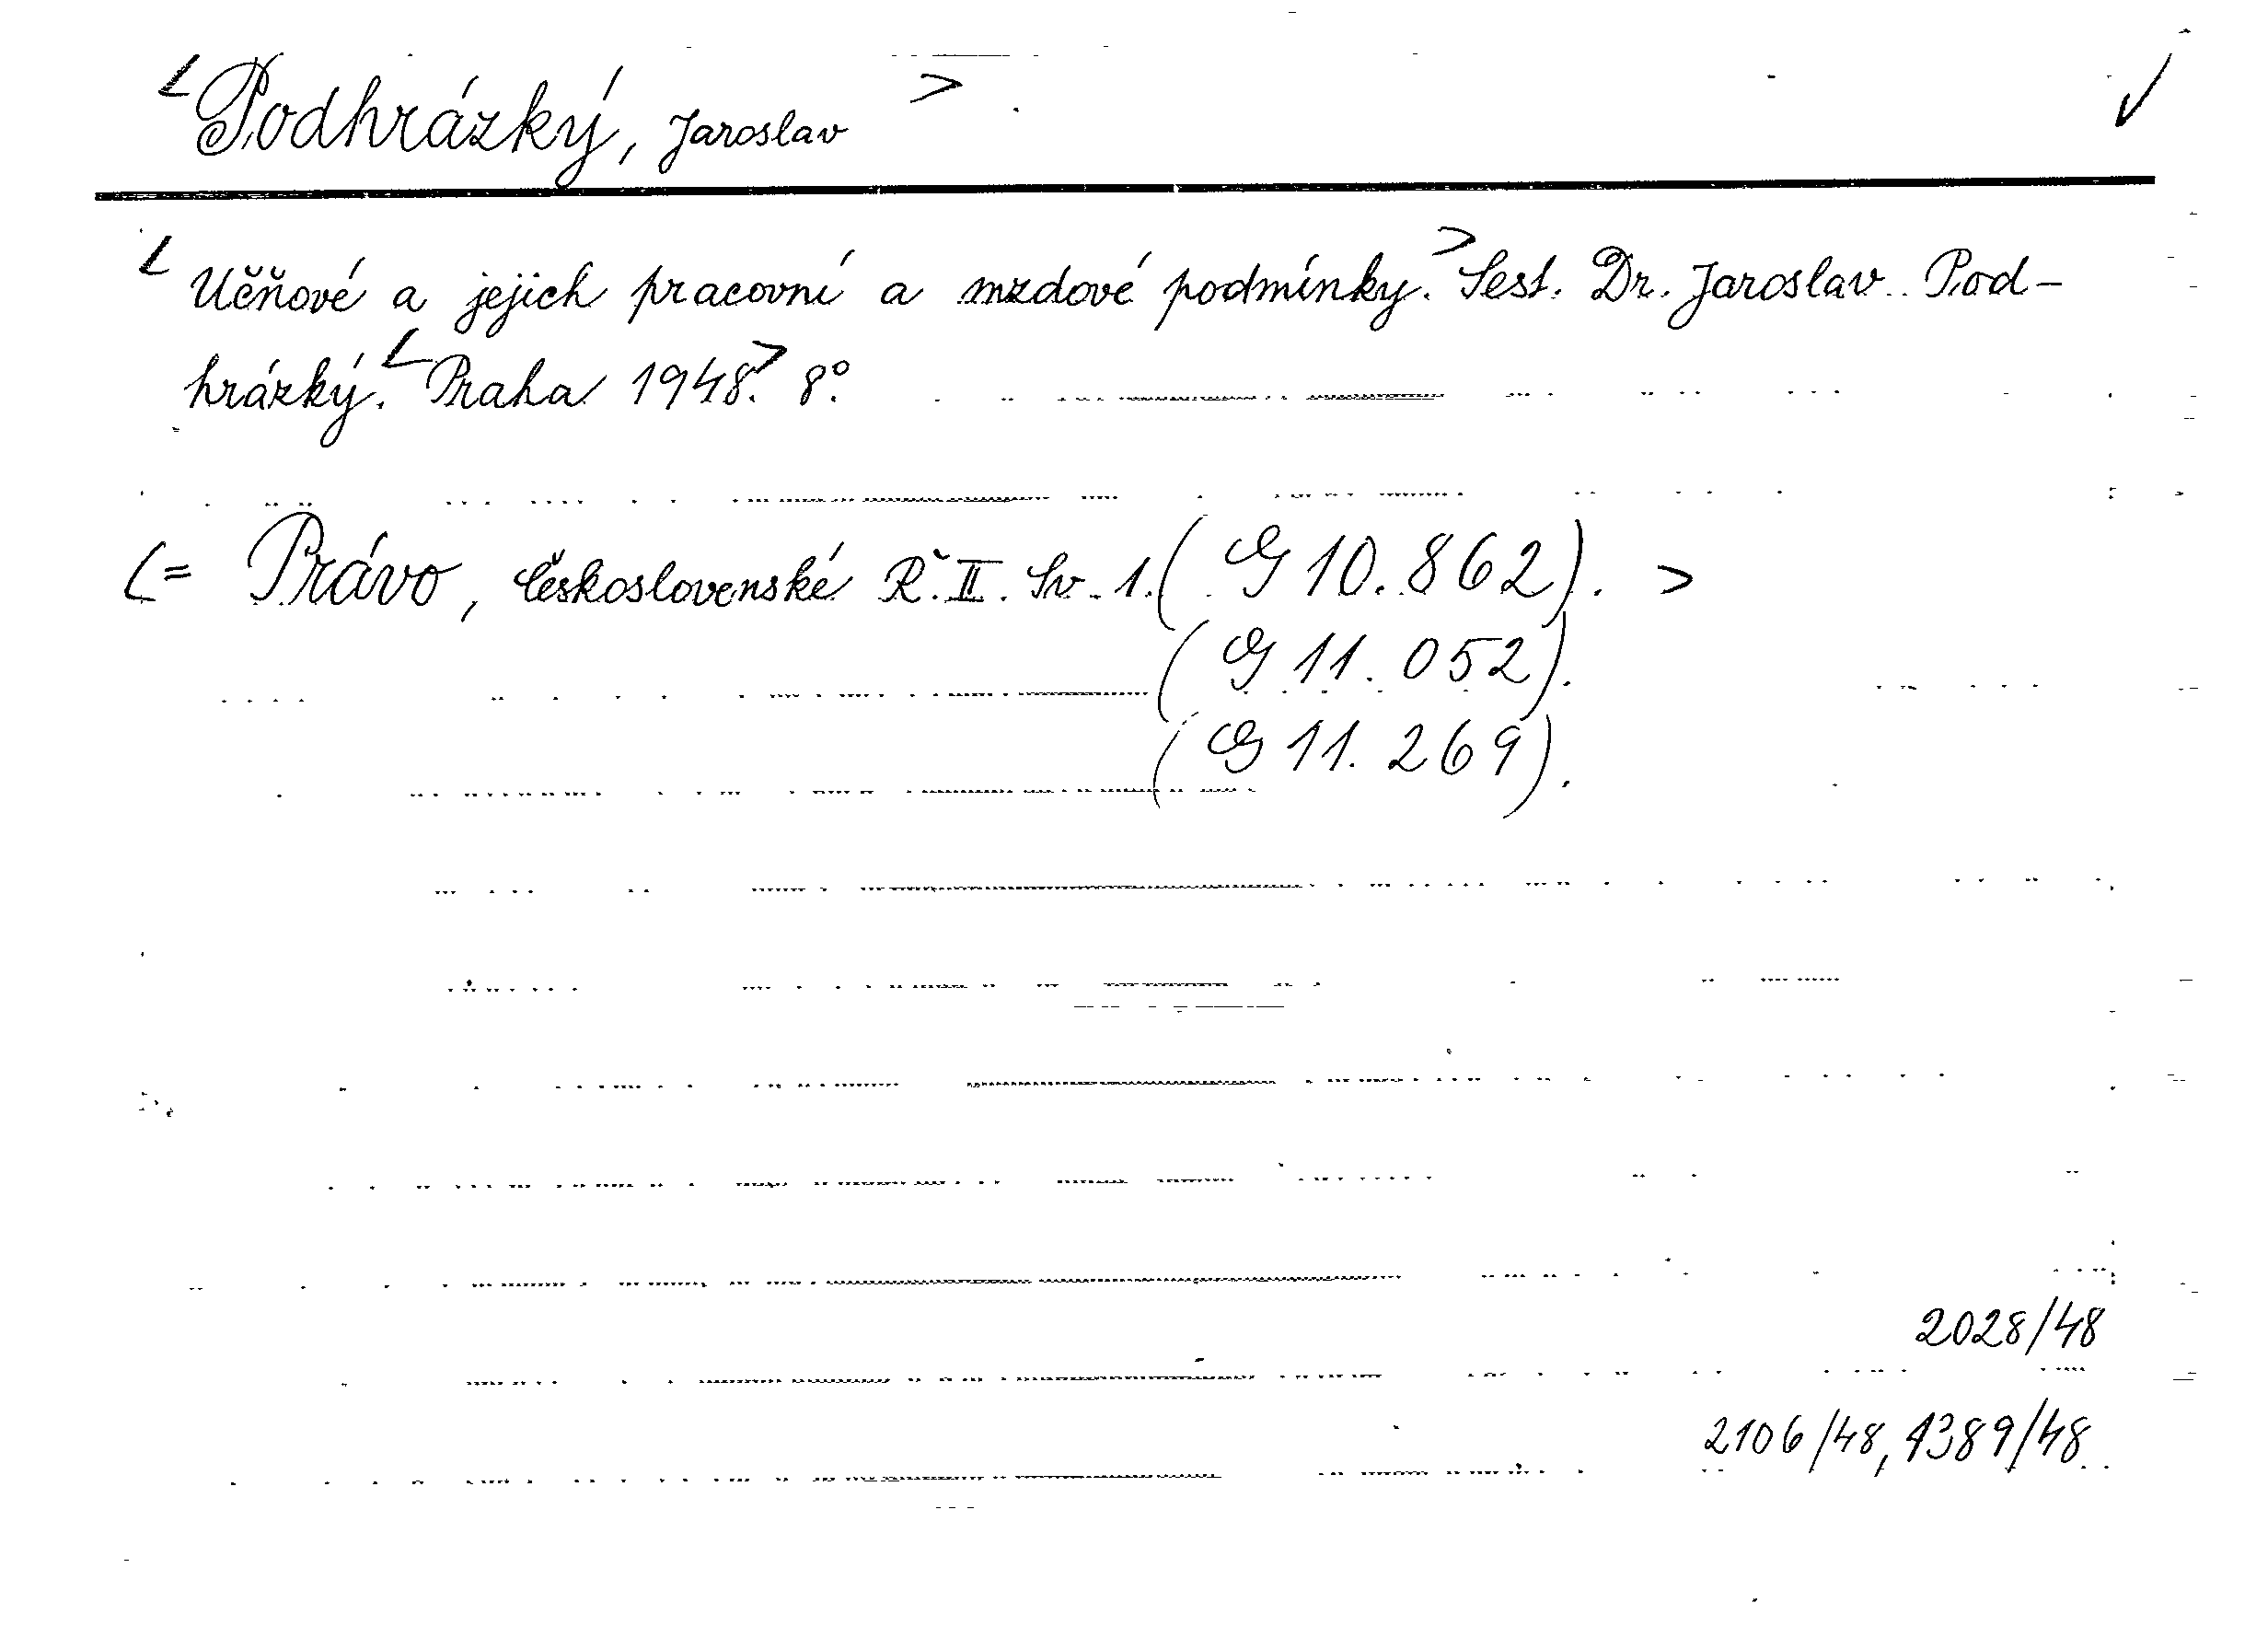 <Podhrázký, Jaroslav> ✓
<Učňové a jejich pracovní a mzdové podmínky.> Sest. Dr. Jaroslav Pod-
hrázký. <Praha 1948.> 8°.
(= Právo, československé Ř. II. Sv. 1. (G 10.862). >
(G 11.052).
(G 11.269).
2028/48
2106/48, 1389/48